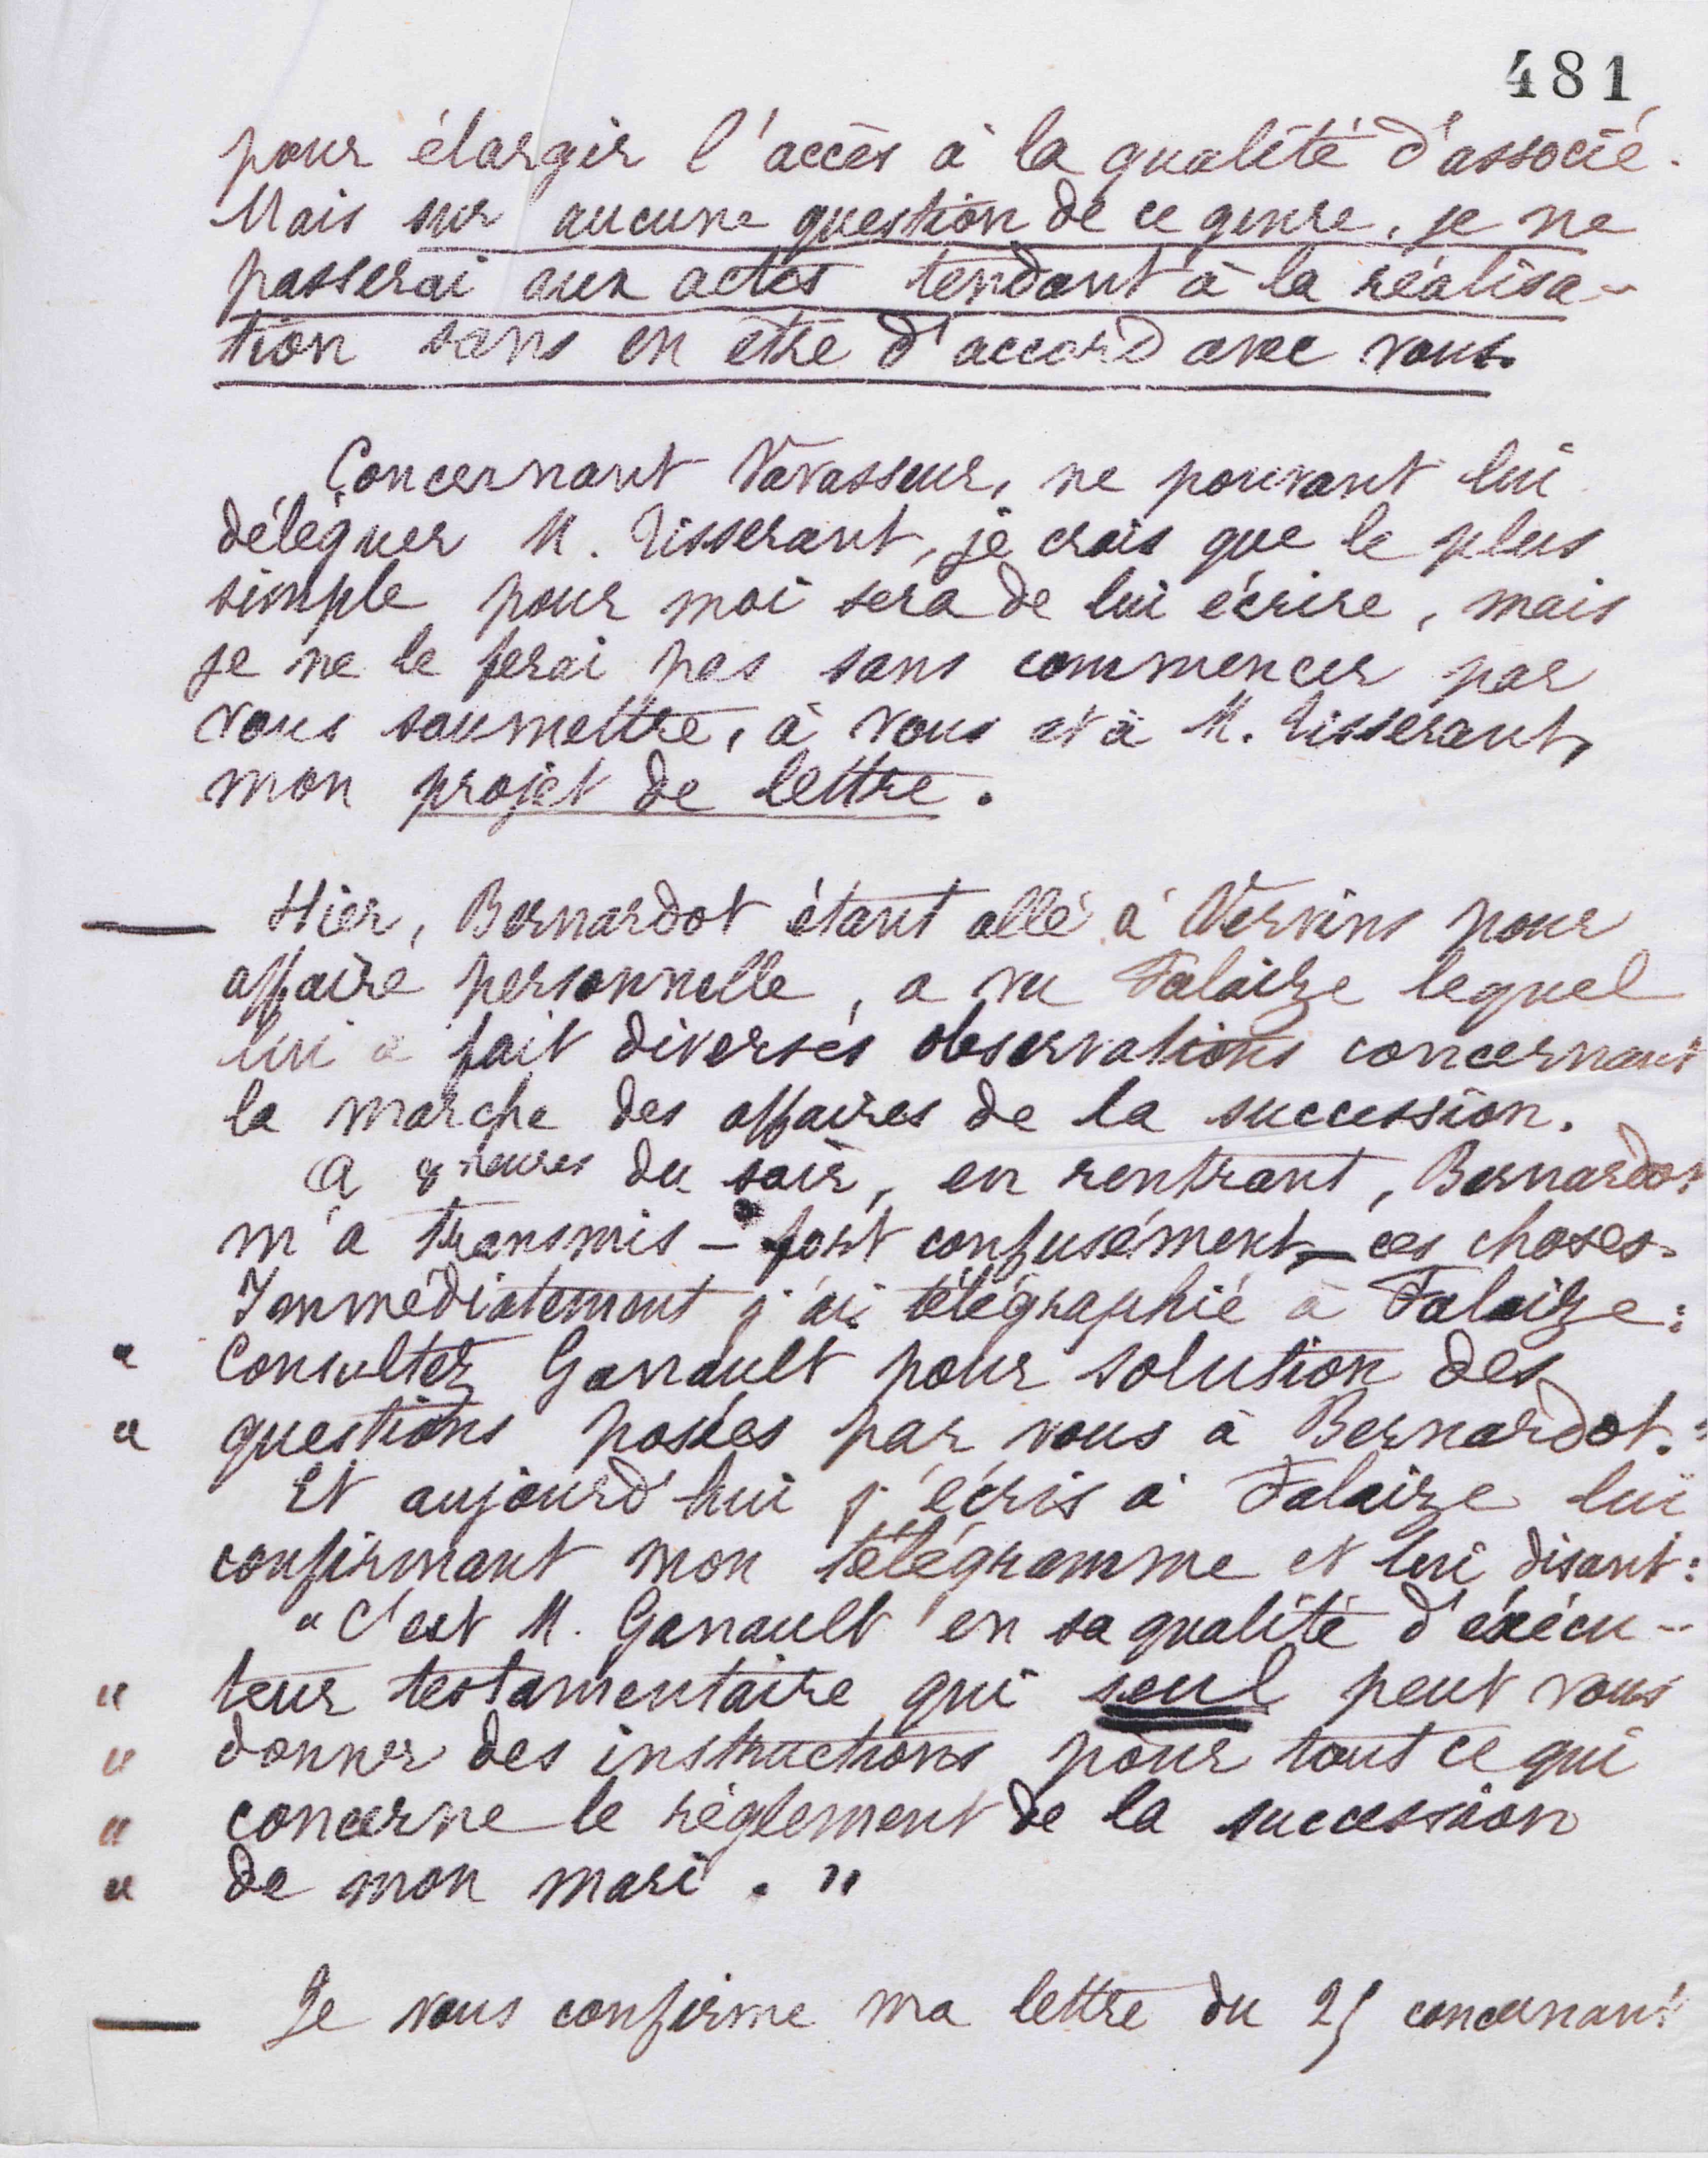 481
pour élargir l'accès à la qualité d'associé.
Mais sur aucune question de ce genre, je ne
passerai aux actes tendant à la réalisa-
tion sans en être d'accord avec vous.
Concernant Vavasseur, ne pouvant lui
déléguer M. Tisserant, je crois que le plus
simple pour moi sera de lui écrire, mais
je ne le ferai pas sans commencer par
vous soumettre, à vous et à M. Tisserant,
mon projet de lettre.
— Hier, Bernardot étant allé à Vervins pour
affaire personnelle, a vu Falaize lequel
lui a fait diverses observations concernant
la marche des affaires de la succession.
A 8 heures du soir, en rentrant, Bernardot
m'a transmis – fort confusément – ces choses.
Immédiatement j'ai télégraphié à Falaize :
" Consultez Ganault pour solution des
" questions posées par vous à Bernardot."
Et aujourd'hui j'écris à Falaize lui
confirmant mon télégramme et lui disant :
" C'est M. Ganault en sa qualité d'exécu-
" teur testamentaire qui seul peut vous
" donner des instructions pour tout ce qui
" concerne le règlement de la succession
" de mon mari. "
— Je vous confirme ma lettre du 25 concernant